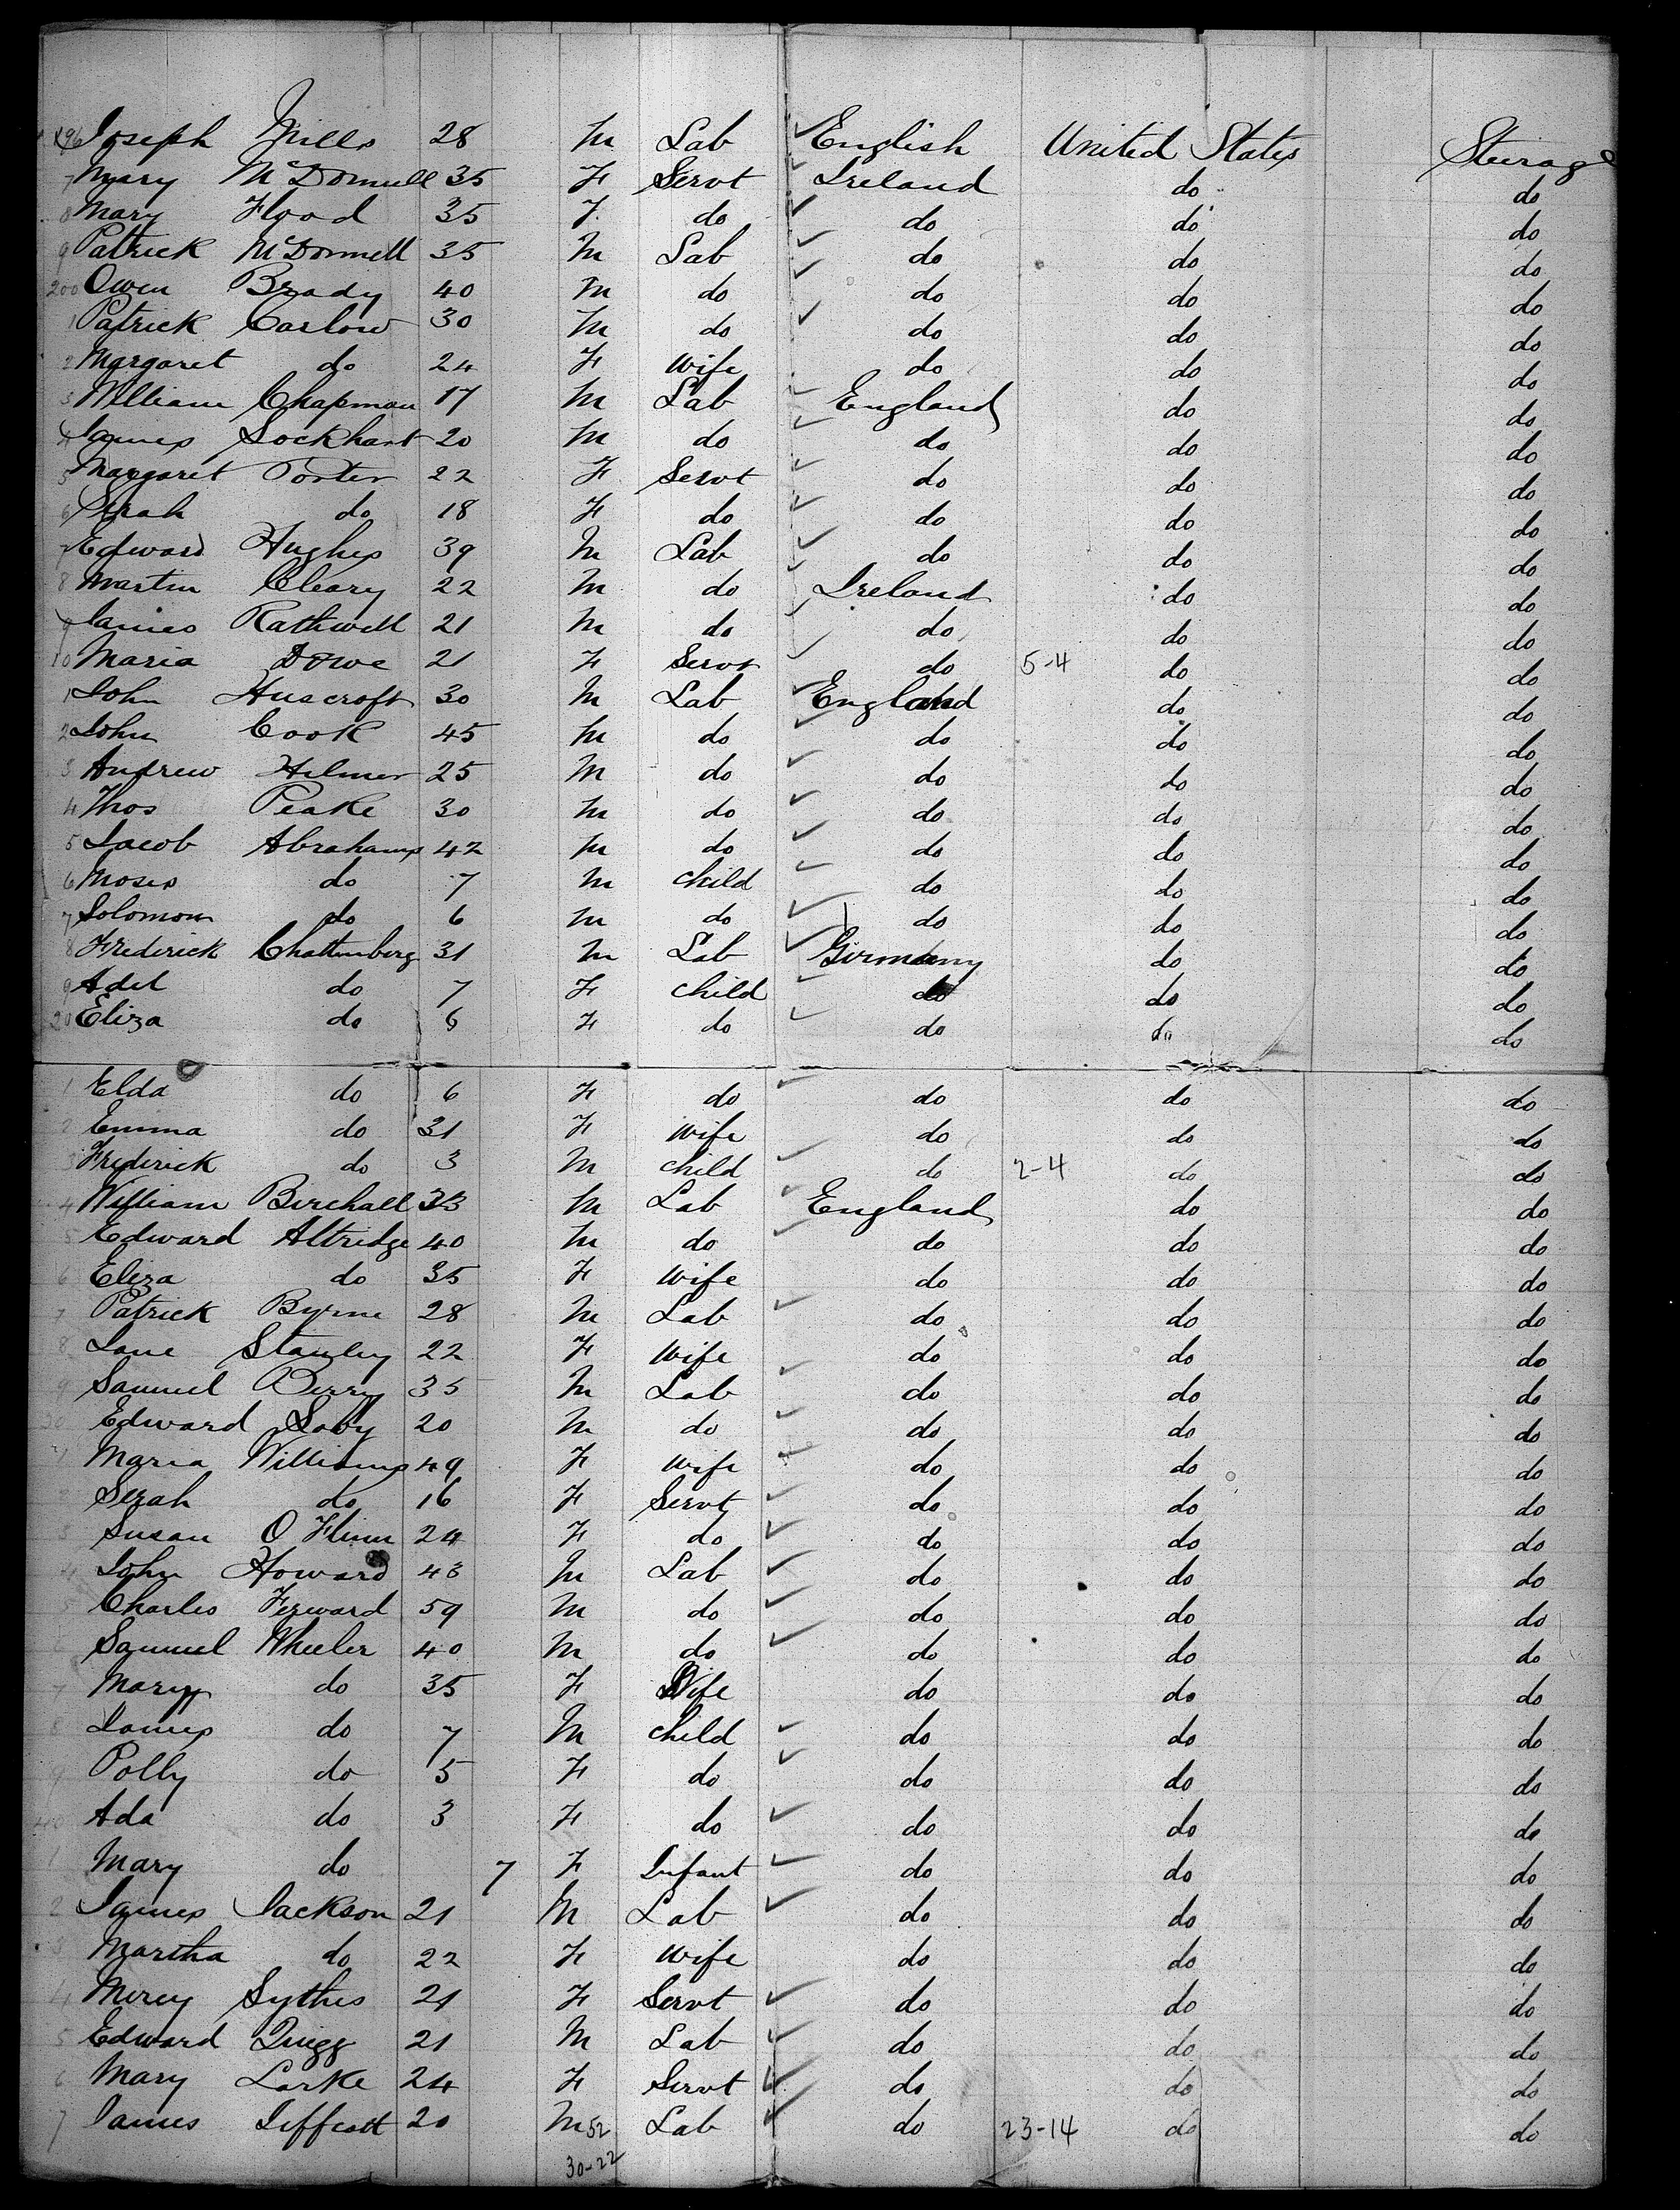 196 Joseph Mills 28 M Lab English United States Steerage
7 Mary McDonnell 35 F Servt Ireland do do
8 Mary Flood 35 F. do do do do
9 Patrick McDonnell 35 M Lab do do do
200 Owen Brady 40 M do do do do
1 Patrick Carlow 30 M do do do do
2 Margaret do 24 F Wife do do do
3 William Chapman 17 M Lab England do do
4 James Lockhart 20 M do do do do
5 Margaret Porter 22 F Servt do do do
6 Sarah do 18 F do do do do
7 Edward Hughes 39 M Lab do do do
8 Martin Cleary 22 M do Ireland do do
9 James Rathwell 21 M do do do do
10 Maria Dowe 21 F Servt do 5-4 do do
1 John Huscroft 30 M Lab England do do
2 John Cook 45 M do do do do
3 Andrew Hilmer 25 M do do do do
4 Thos Peake 30 M do do do do
5 Jacob Abrahams 42 M do do do do
6 Moses do 7 M child do do do
7 Solomon do 6 M do do do do
8 Frederick Chattenberg 31 M Lab Germany do do
9 Adel do 7 F child do do do
20 Eliza do 6 F do do do do
1 Elda do 6 F do do do do
2 Emma do 31 F Wife do do do
3 Frederick do 3 M child do 2-4 do do
4 William Birchall 33 M Lab England do do
5 Edward Altridge 40 M do do do do
6 Eliza do 35 F Wife do do do
7 Patrick Byrne 28 M Lab do do do
8 Jane Stanley 22 F Wife do do do
9 Samuel Berry 35 M Lab do do do
30 Edward Saby 20 M do do do do
1 Maria Williams 49 F Wife do do do
2 Serah do 16 F Servt do do do
3 Susan O Flinn 24 F do do do do
4 John Howard 43 M Lab do do do
5 Charles Ferward 59 M do do do do
6 Samuel Wheeler 40 M do do do do
7 Mary do 35 F Wife do do do
8 James do 7 M child do do do
9 Polly do 5 F do do do do
40 Ada do 3 F do do do do
1 Mary do 7 F Infant do do do
2 James Jackson 21 M Lab do do do
3 Martha do 22 F Wife do do do
4 Mercy Sythes 21 F Servt do do do
5 Edward Quigg 21 M Lab do do do
6 Mary Larke 24 F Servt do do do
7 James Liffcott 20 M 52 Lab do 23-14 do do
30-22